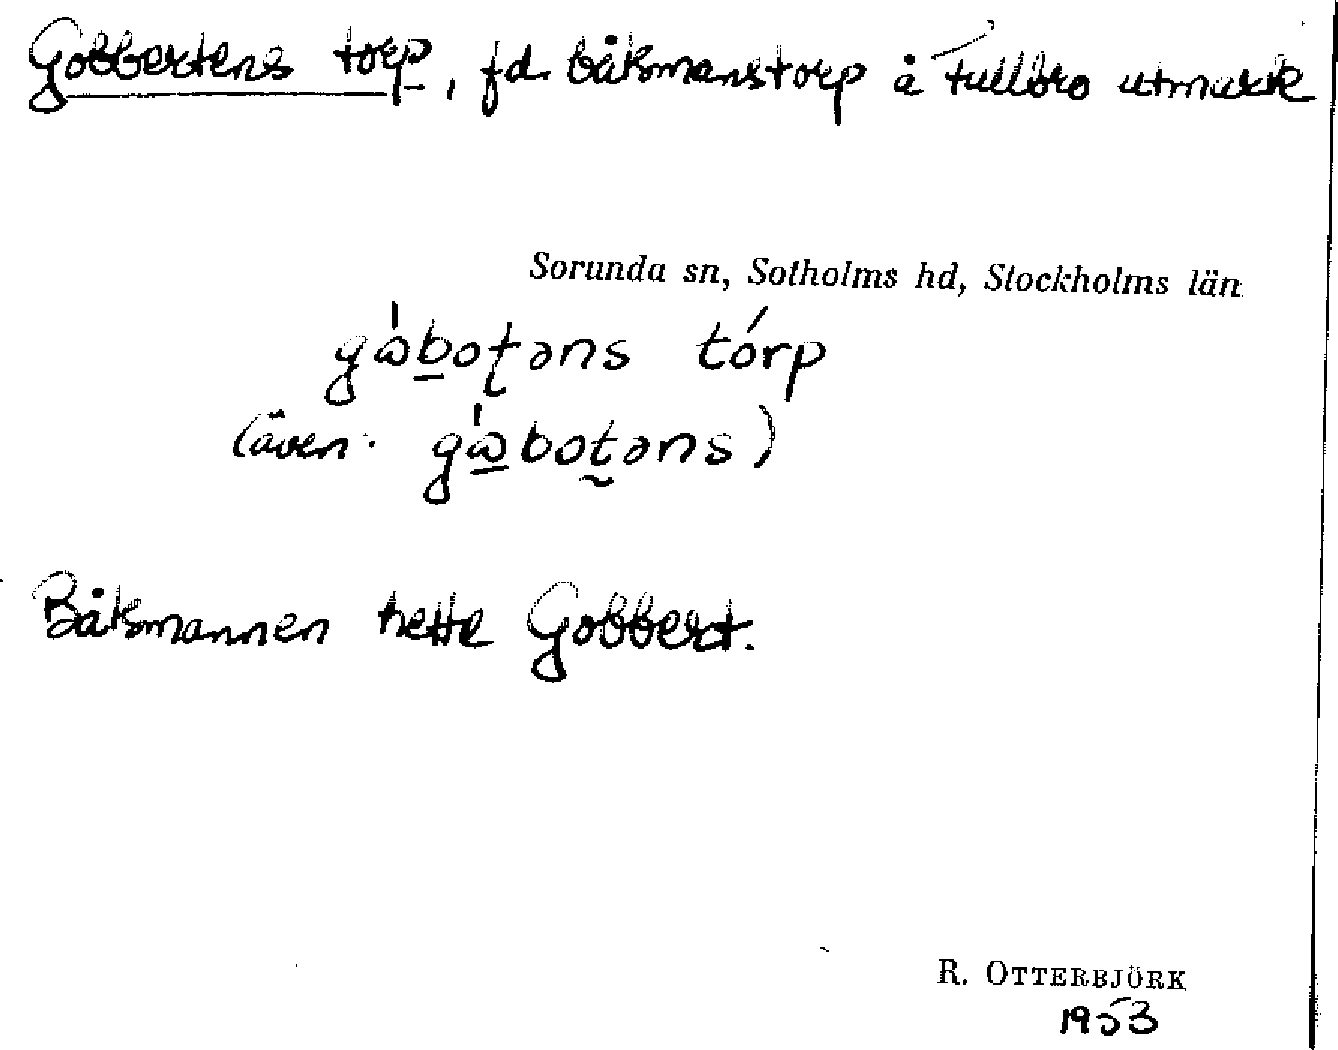 Gobbertens torp, fd. båtsmanstorp å Fullbro utmark
Sorunda sn, Sotholms hd, Stockholms län
gɷ̀boʈəns tórp
(även. gɷ̀bot̰əns)
Båtsmannen hette Gobbert.
R. OTTERBJÖRK
1953